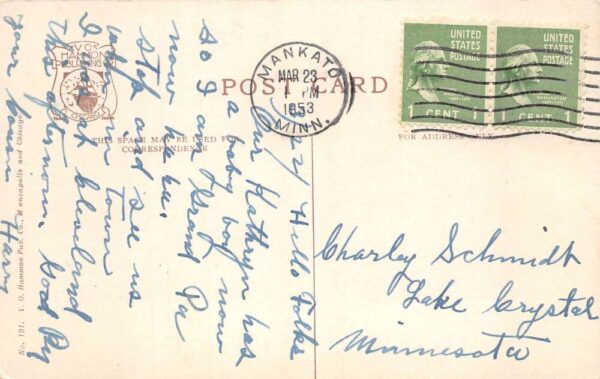 V. O. HAMMON
PUBLISHING
CO.
CHICAGO
POST CARD
THIS SPACE MAY BE USED FOR
CORRESPONDENCE
FOR ADDRESS ONLY
MANKATO
MAR 23
1 PM
1953
MINN.
UNITED
STATES
POSTAGE
1 CENT 1
UNITED
STATES
POSTAGE
1 CENT 1
Hello Folks
Our Kathryn has
a baby boy now
So I am Grand Pa
now
Stop and see us
when in town
I at Cleveland
this afternoon. Good By
your Harry
Charley Schmidt
Lake Crystal
Minnesota
No. 191. V. O. Hammon Pub. Co., Minneapolis and Chicago